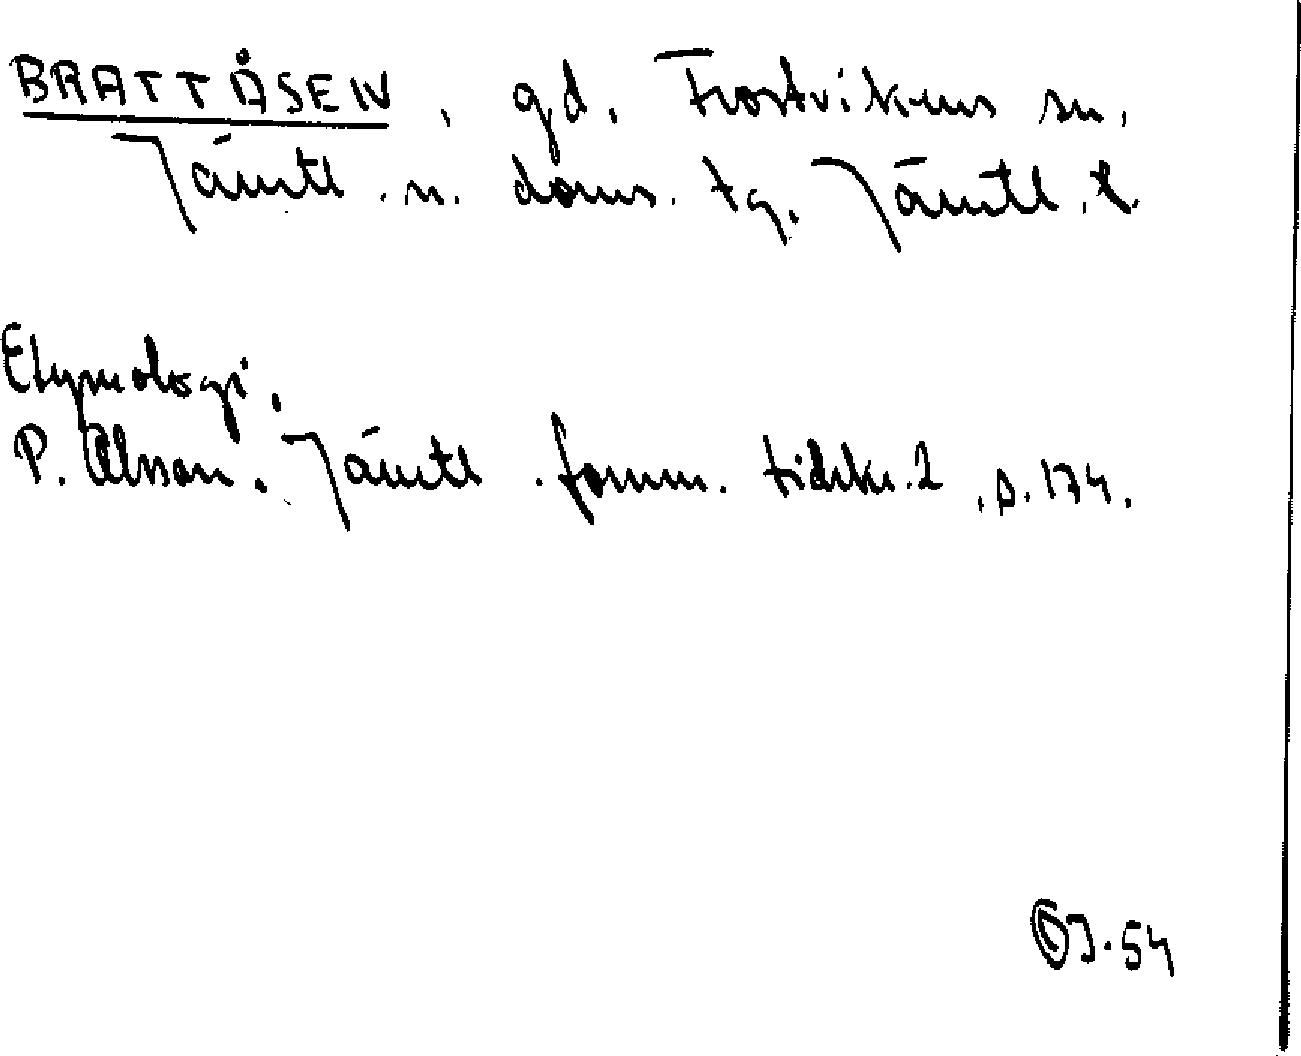 BRATTÅSEN, gd. Frostvikens sn.
Jämtl. n. doms. tg. Jämtl. l.
Etymologi.
P. Olsson. Jämtl. fornm. tidskr. 2, s. 174.
54